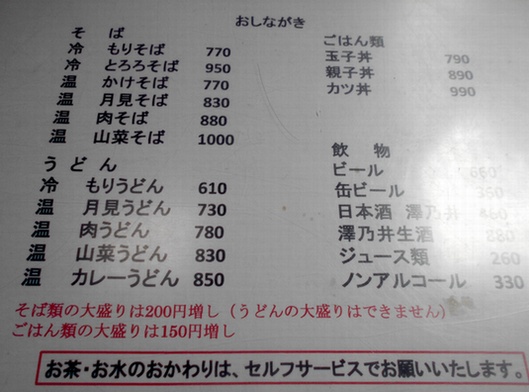 おしながき
そ ば
冷 もりそば 770
冷 とろろそば 950
温 かけそば 770
温 月見そば 830
温 肉そば 880
温 山菜そば 1000
うどん
冷 もりうどん 610
温 月見うどん 730
温 肉うどん 780
温 山菜うどん 830
温 カレーうどん 850
ごはん類
玉子丼 790
親子丼 890
カツ丼 990
飲 物
ビール 660
缶ビール 360
日本酒 澤乃井
澤乃井生酒 880
ジュース類 260
ノンアルコール 330
そば類の大盛りは200円増し（うどんの大盛りはできません）
ごはん類の大盛りは150円増し
お茶・お水のおかわりは、セルフサービスでお願いいたします。